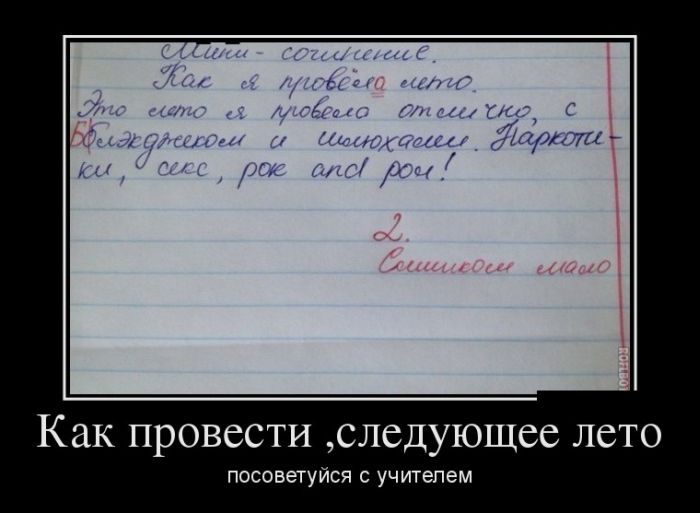 Мини- сочинение.
Как я провёла лето.
Это лето я провела отлично, с
Блэкджеком и шлюхами. Наркоти-
ки, секс, рок and рол!
2.
Слишком мало
Как провести ,следующее лето
посоветуйся с учителем